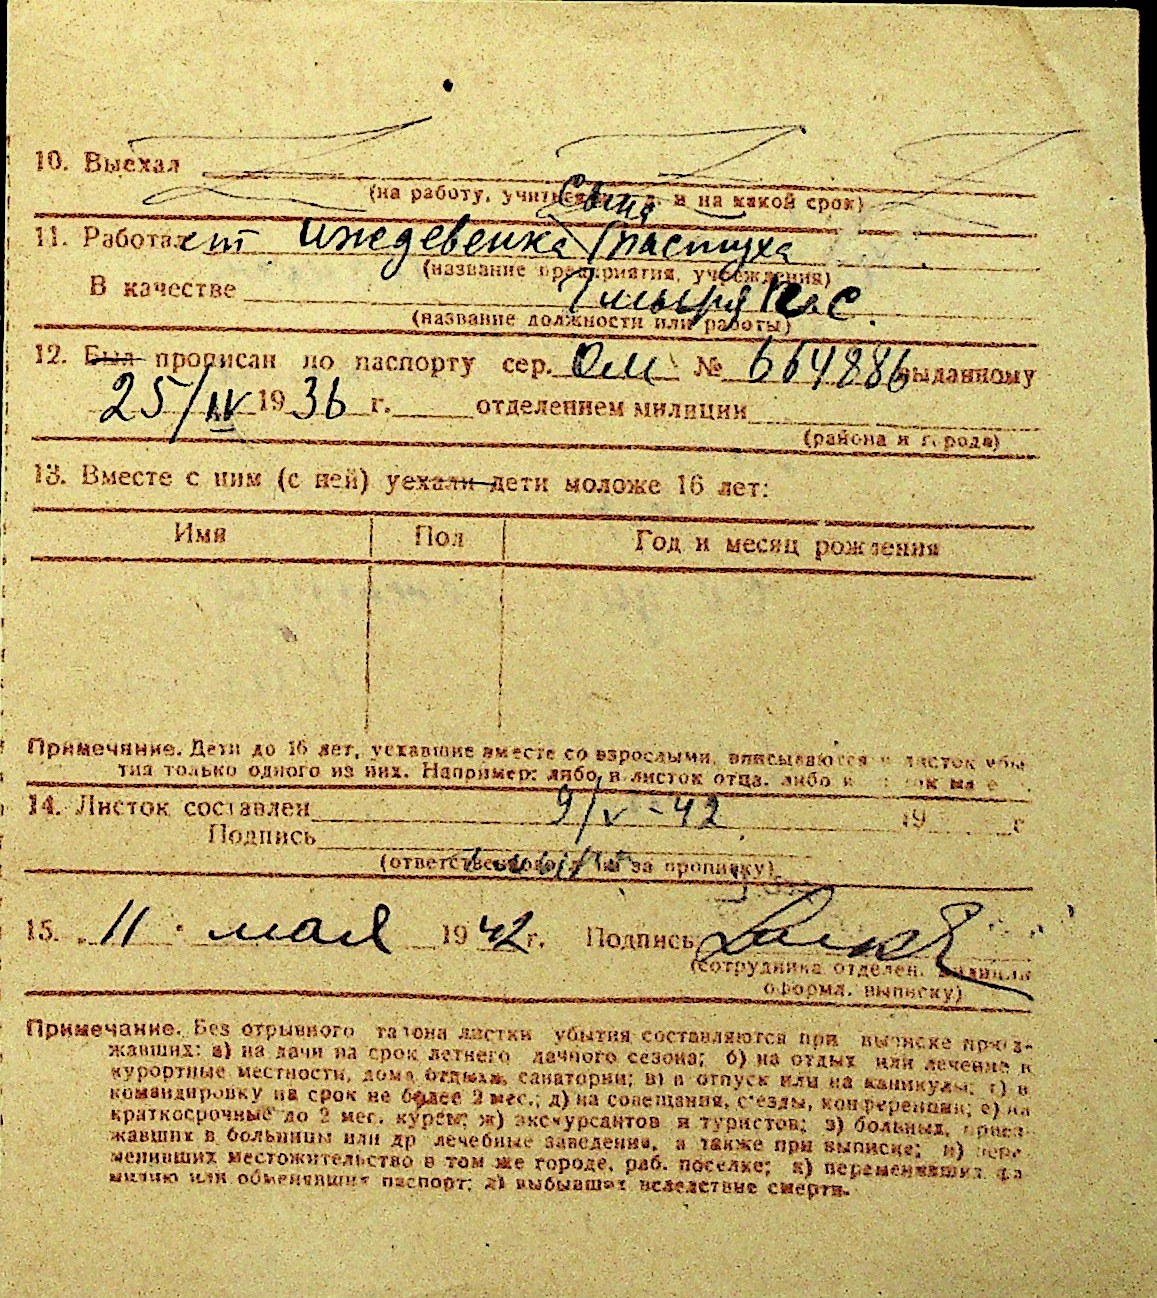 10. Выехал
(на работу, учиться и т. д. и на какой срок)
сына
11. Работает иждевенка пастуха
(название предприятия, учреждения)
В качестве
(название должности или работы)
12. Был прописан по паспорту сер. ОМ № 664886 выданному
25/IV 1936 г. отделением милиции
(района и города)
13. Вместе с ним (с ней) уехали дети моложе 16 лет:
Имя Пол Год и месяц рождения
Примечание. Дети до 16 лет, уехавшие вместе со взрослыми, вписываются в листок убы-
тия только одного из них. Например: либо в листок отца, либо в листок ма
14. Листок составлен 9/V-42 19 г
Подпись
(ответственного за прописку)
15. „11" мая 1942 г. Подпись
(сотрудника отделен. милиции
оформл. выписку)
Примечание. Без отрывного талона листки убытия составляются при выписке приез-
жавших: а) на дачи на срок летнего дачного сезона; б) на отдых или лечение в
курортные местности, дома отдыха, санатории; в) в отпуск или на каникулы; г) в
командировку на срок не более 2 мес.; д) на совещания, съезды, конференции; е) на
краткосрочные до 2 мес. курсы; ж) экскурсантов и туристов; з) больных, приез-
жавших в больницы или др лечебные заведения, а также при выписке; и) пере
менивших местожительство в том же городе, раб. поселке; к) переменивших фа
милию или обменявших паспорт; л) выбывших вследствие смерти.